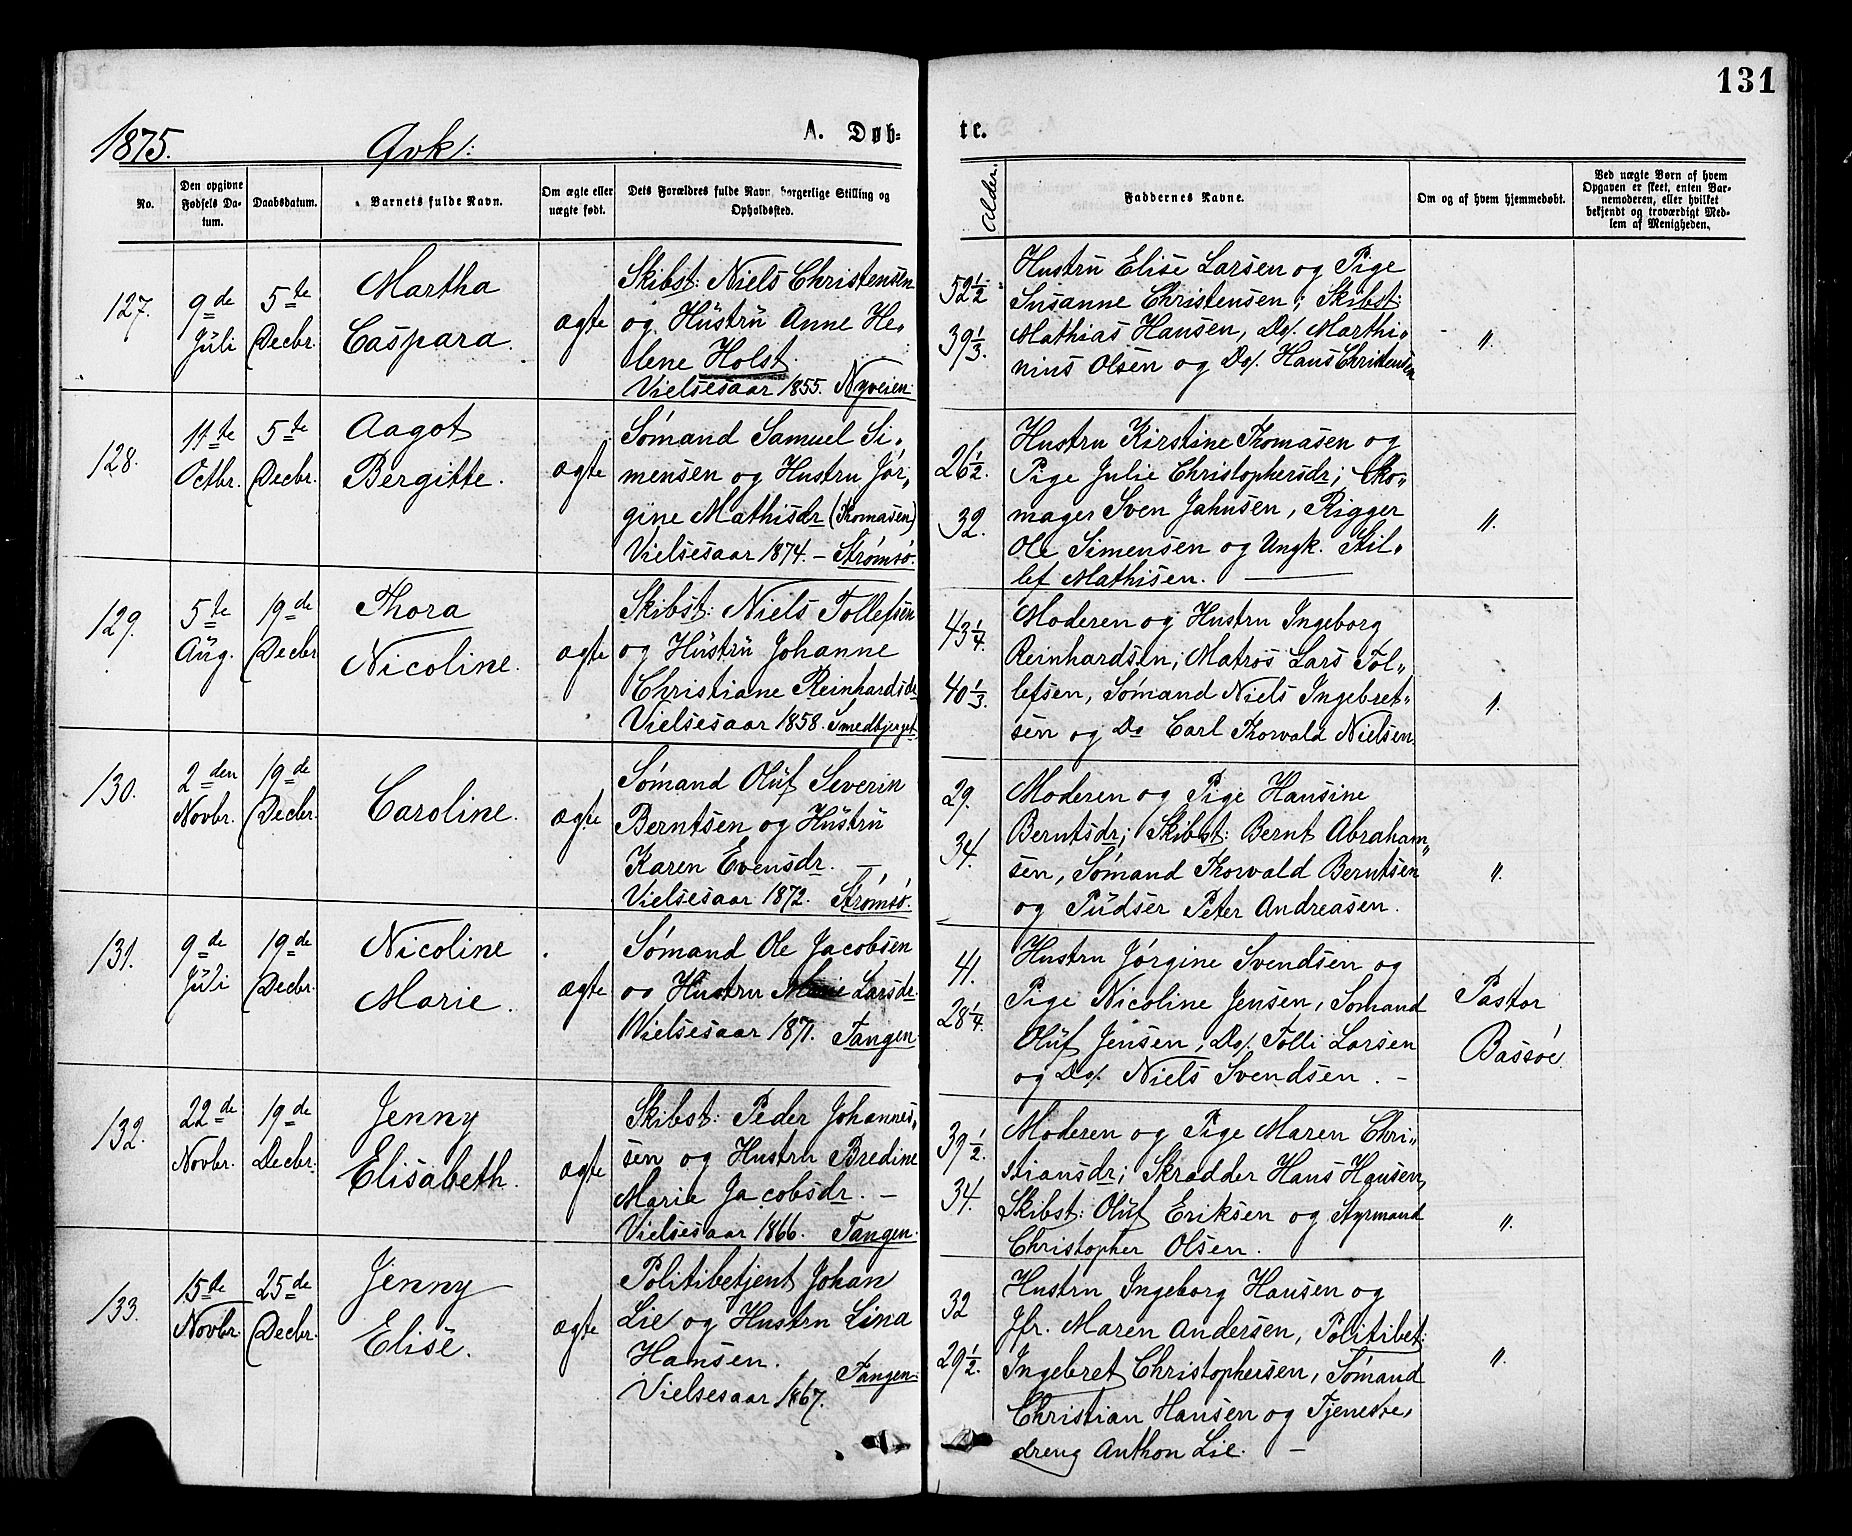 131
1875. Qvk: A. Døb= te.
No. Den opgivne Fødsels Datum. Daabsdatum. Barnets fulde Navn. Om ægte eller uægte født. Dets Forældres fulde Navn, borgerlige Stilling og Opholdssted. Alder. Faddernes Navne. Om og af hvem hjemmedøbt. Ved uægte Børn af hvem Opgaven er skeet, enten Barnemoderen, eller hvilket bekjendt og troværdigt Medlem af Menigheden.
127. 9de Juli 5te Decbr. Martha Caspara. ægte
Skibst: Niels Christensen
og Hustru Anne He-
lene Holst
Vielsesaar 1855. Nyveien
52½
39⅓.
Hustru Elise Larsen og Pige
Susanne Christensen; Skibst:
Mathias Hansen, Do/. Marthi-
nius Olsen og Do/. Hans Christensen
"
128. 11te Octbr. 5te Decbr. Aagot Bergitte. ægte
Sømand Samuel Si-
mensen og Hustru Jør-
gine Mathisdr (Thomasen)
Vielsesaar 1874. – Strømsø.
26½.
32.
Hustru Kirstine Thomasen og
Pige Julie Christophersdr; Sko-
mager Sven Jahnsen, Rigger
Ole Simensen og Ungk.
Mathisen.
"
129. 5te Aug. 19de Decbr Thora Nicoline. ægte
Skibst: Niels Tollefsen
og Hustru Johanne
Christiane Reinhardsdr
Vielsesaar 1858. Smedbjerget
43¼.
40⅓.
Moderen og Hustru Ingeborg
Reinhardsen; Matros Lars Tol-
lefsen, Sømand Niels Ingebret-
sen og Do Carl Thorvald Nielsen
"
130. 2den Novbr. 19de Decbr. Caroline. ægte
Sømand Oluf Severin
Berntsen og Hustru
Karen Evensdr. –
Vielsesaar 1872. Strømsø.
29.
34.
Moderen og Pige Hansine
Berntsdr; Skibst: Bernt Abraham-
sen, Sømand Thorvald Berntsen
og Pudser Peter Andreasen.
"
131. 9de Juli 19de Decbr. Nicoline Marie. ægte
Sømand Ole Jacobsen
og Hustru Larsdr.
Vielsesaar 1871. Tangen
41.
28¼.
Hustru Jørgine Svendsen og
Pige Nicoline Jensen, Sømand
Oluf Jensen, Do/. Tolli Larsen
og Do/. Niels Svendsen. –
Pastor
Bassøe
132. 22de Novbr. 19de Decbr. Jenny Elisabeth. ægte
Skibst: Peder Johannes-
sen og Hustru Bredine
Marie Jacobsdr. –
Vielsesaar 1866. Tangen.
39½.
34.
Moderen og Pige Maren Chri-
stiansdr; Skrædder Hans Hansen,
Skibst: Oluf Eriksen og Styrmand
Christopher Olsen.
"
133. 15de Novbr. 25de Decbr. Jenny Elise. ægte
Politibetjent Johan
Lie og Hustru Lina
Hansen. Tangen.
Vielsesaar 1867.
32
29½.
Hustru Ingeborg Hansen og
Jfr. Maren Andersen, Politibet:
Ingebret Christophersen, Sømand
Christian Hansen og Tjeneste-
dreng Anthon Lie. –
"